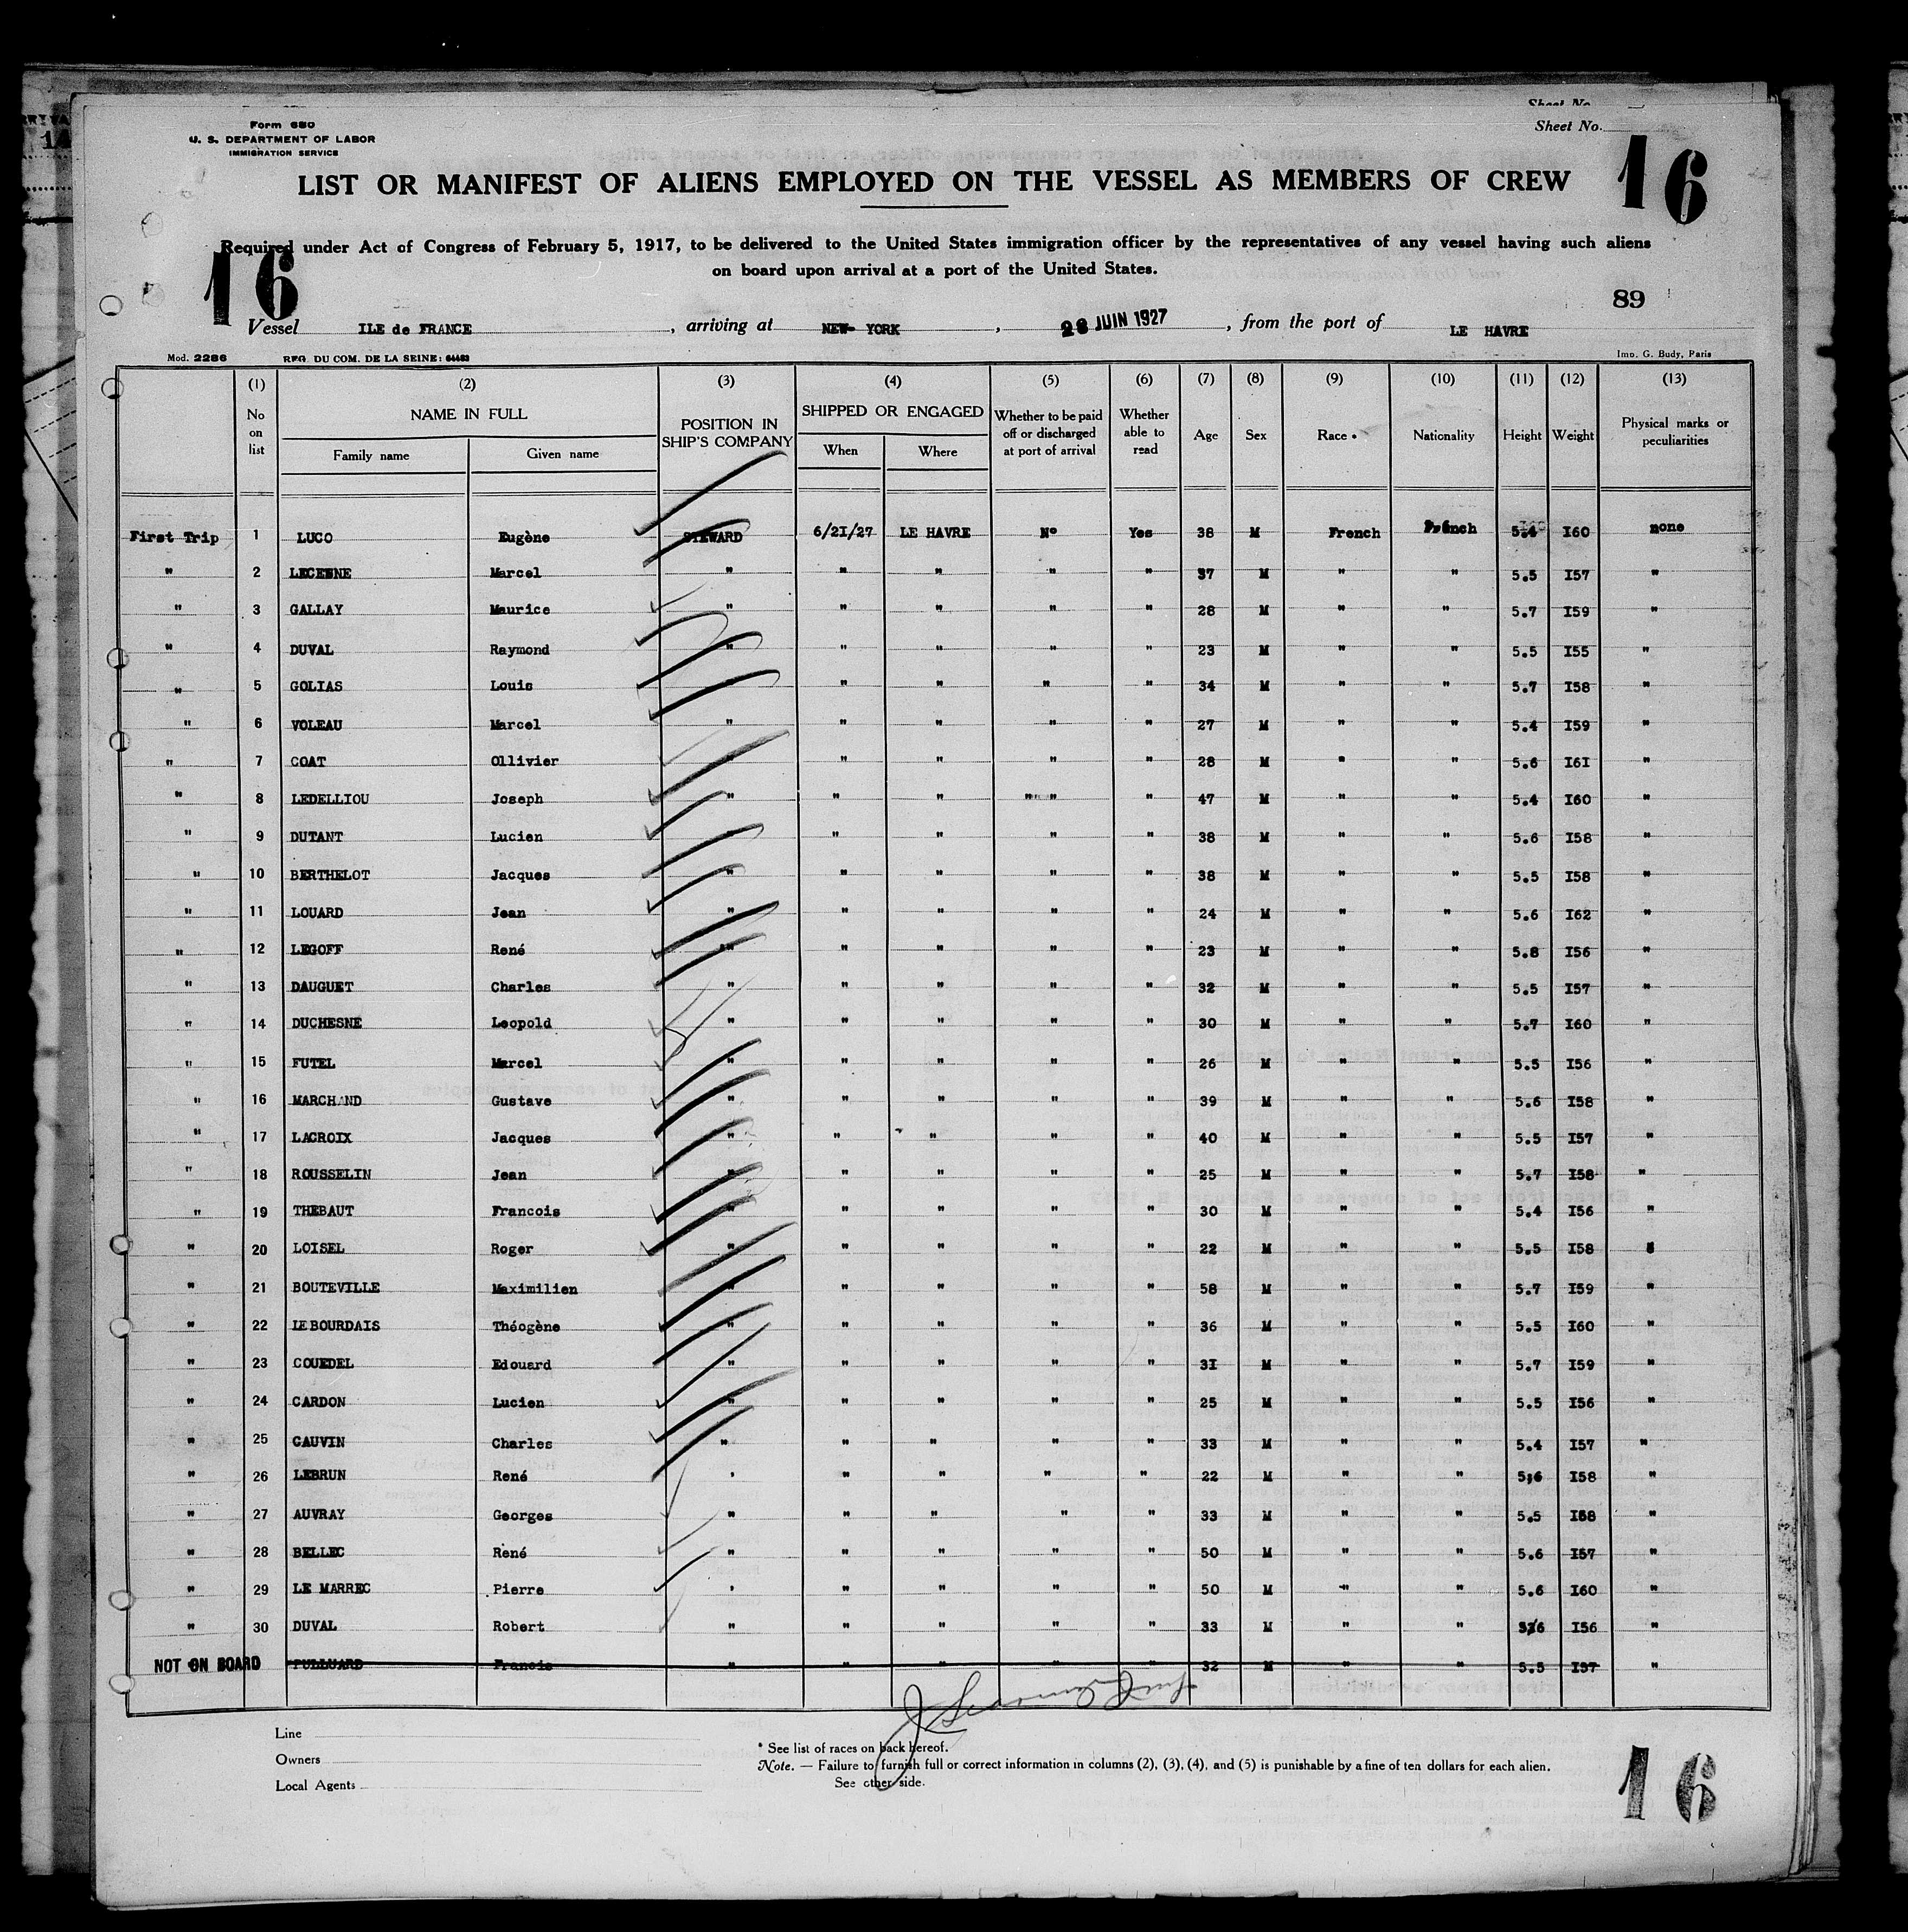 Sheet No.
Sheet No.
Form 680
U. S. DEPARTMENT OF LABOR
IMMIGRATION SERVICE
16
LIST OR MANIFEST OF ALIENS EMPLOYED ON THE VESSEL AS MEMBERS OF CREW
Required under Act of Congress of February 5, 1917, to be delivered to the United States immigration officer by the representatives of any vessel having such aliens
on board upon arrival at a port of the United States.
16
89
Vessel ILE de FRANCE, arriving at NEW-YORK, 28 JUIN 1927, from the port of LE HAVRE
Mod. 2286 REG. DU COM. DE LA SEINE: 64463 Imp. G. Budy, Paris
(1) (2) (3) (4) (5) (6) (7) (8) (9) (10) (11) (12) (13)
No on list NAME IN FULL POSITION IN SHIP'S COMPANY SHIPPED OR ENGAGED Whether to be paid off or discharged at port of arrival Whether able to read Age Sex Race * Nationality Height Weight Physical marks or peculiarities
Family name Given name When Where
First Trip 1 LUCO Eugène STEWARD 6/21/27 LE HAVRE No Yes 38 M French French 5.4 I60 none
" 2 LECENNE Marcel " " " " " 37 M " " 5.5 I57 "
" 3 GALLAY Maurice " " " " " 28 M " " 5.7 I59 "
" 4 DUVAL Raymond " " " " " 23 M " " 5.5 I55 "
" 5 GOLIAS Louis " " " " 34 M " " 5.7 I58 "
" 6 VOLEAU Marcel " " " " " 27 M " " 5.4 I59 "
" 7 COAT Ollivier " " " " " 28 M " " 5.6 I6I "
" 8 LEDELLIOU Joseph " " " " " 47 M " " 5.4 I60 "
" 9 DUTANT Lucien " " " " " 38 M " " 5.6 I58 "
" 10 BERTHELOT Jacques " " " " " 38 M " " 5.5 I58 "
" 11 LOUARD Jean " " " " " 24 M " " 5.6 I62 "
" 12 LEGOFF René " " " " " 23 M " " 5.8 I56 "
" 13 DAUGUET Charles " " " " " 32 M " " 5.5 I57 "
" 14 DUCHESNE Leopold " " " " " 30 M " " 5.7 I60 "
" 15 FUTEL Marcel " " " " " 26 M " " 5.5 I56 "
" 16 MARCHAND Gustave " " " " " 39 M " " 5.6 I58 "
" 17 LACROIX Jacques " " " " " 40 M " " 5.5 I57 "
" 18 ROUSSELIN Jean " " " " " 25 M " " 5.7 I58 "
" 19 THEBAUT Francois " " " " " 30 M " " 5.4 I56 "
" 20 LOISEL Roger " " " " " 22 M " " 5.5 I58
" 21 BOUTEVILLE Maximilien " " " " " 58 M " " 5.7 I59 "
" 22 LEBOURDAIS Théogène " " " " " 36 M " " 5.5 I60 "
" 23 COUEDEL Edouard " " " " " 3I M " " 5.7 I59 "
" 24 CARDON Lucien " " " " " 25 M " " 5.5 I56 "
" 25 CAUVIN Charles " " " " " 33 M " " 5.4 I57 "
" 26 LEBRUN René ' " " " " 22 M " " 5;6 I58 "
" 27 AUVRAY Georges " " " " " 33 M " " 5.5 I58 "
" 28 BELLEC René " " " " " 50 M " " 5.6 I57 "
" 29 LE MARREC Pierre ' " " " " 50 M " " 5.6 I60 "
" 30 DUVAL Robert " " " " " 33 M " " I56 "
NOT ON BOARD PULLUARD Francis " " " " " 32 M " " 5.5 I57 "
Line
Owners
Local Agents
* See list of races on back hereof.
Note. — Failure to furnish full or correct information in columns (2), (3), (4), and (5) is punishable by a fine of ten dollars for each alien.
See other side.
16